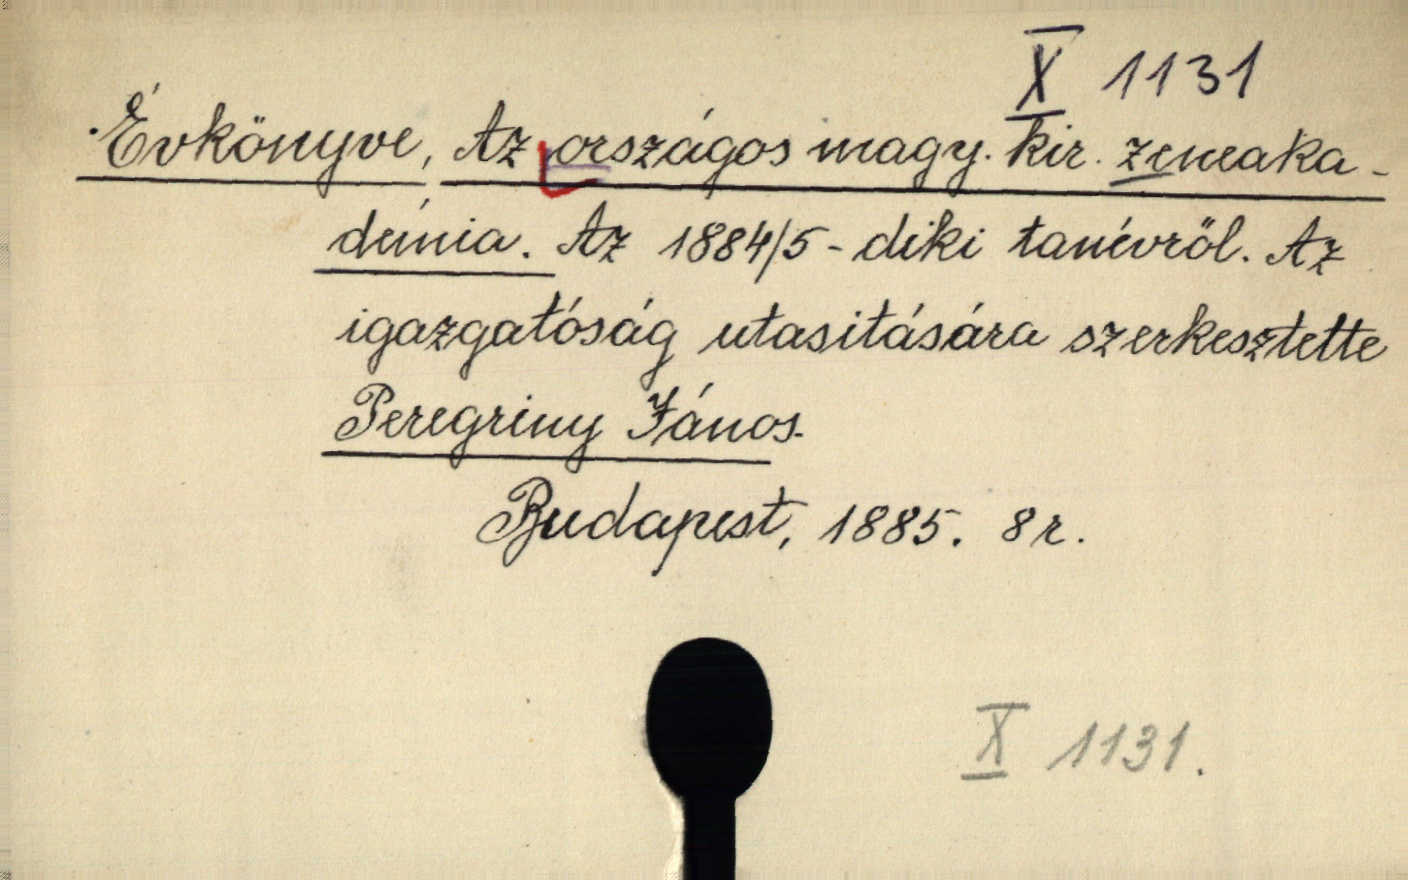 X 1131
Évkönyve, Az országos magy. kir. zeneaka-
démia. Az 1884/5-diki tanévről. Az
igazgatóság utasitására szerkesztette
Peregriny János.
Budapest, 1885. 8r.
X 1131.